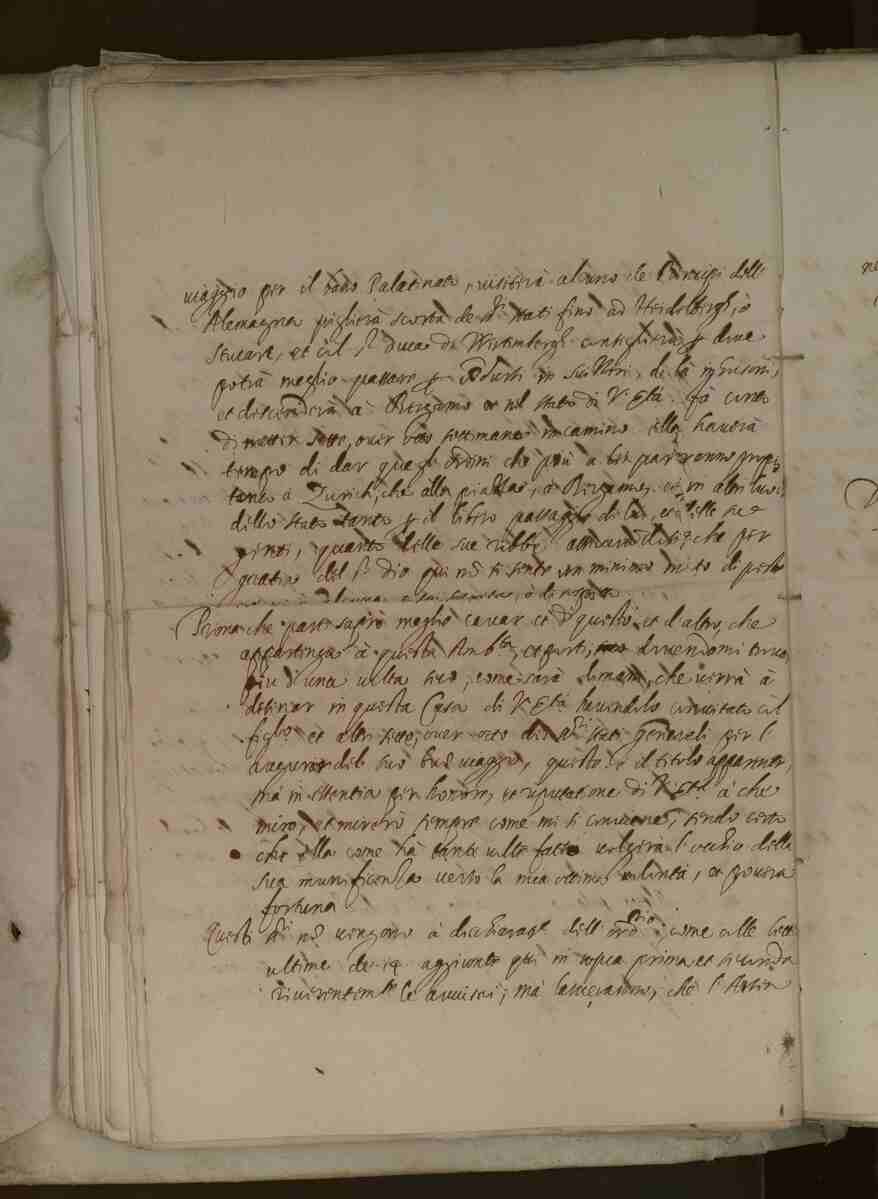 viaggio per il basso Palatinato, visiterà alcuno de Principi dell'
Alemagna piglierà scorta de SSri stati fino ad Heidelbergh, o
Stucart, et col Sr Duca di Wirtembergh consiglierà per dove
potrà meglio passare per condursi in Suizzeri, de là in Grisoni,
et descenderà à Bergamo et nel stato di V. Sertà. Fà conto
di metter sette, over otto settimane in camino ella haverà
tempo di dar quegli ordini che più a lei pareranno
tanto à Zurich, che alla piazza, à Bergamo, et in altri
dello stato tanto per il libero passaggio di lui, et delle sue
genti, quanto delle sue robbe che per
gratia del Sr Dio qui non si sente un minimo moto di peste

Prima che parti saprò meglio cavar et di questo, et d'altro, che
appartenga à questa Ambria, et parti, dovendomi
più d'una volta seco, come sarà dimani, che verrà à
desinar in questa Casa di V. Sertà havendolo convitato col
figlio et altri sette, over otto di SSri stati Generali per l'
augurio del suo buon viaggio, questo è il titolo apparente,
mà in essentia per honore, et riputatione di V. Sertà à che
miro, et mirerò sempre come mi si conviene, sendo certo
che ella come hà tante volte fatto volgerà l'occhio della
sua munificenza verso la mia ottima volontà, et povera
fortuna.
Questi SSri non vengono à dichiarar dell' ordrio come colle
ultime de aggionte qui in copia prima et seconda
riverentemte le avvisai; mà lasceranno, che l'